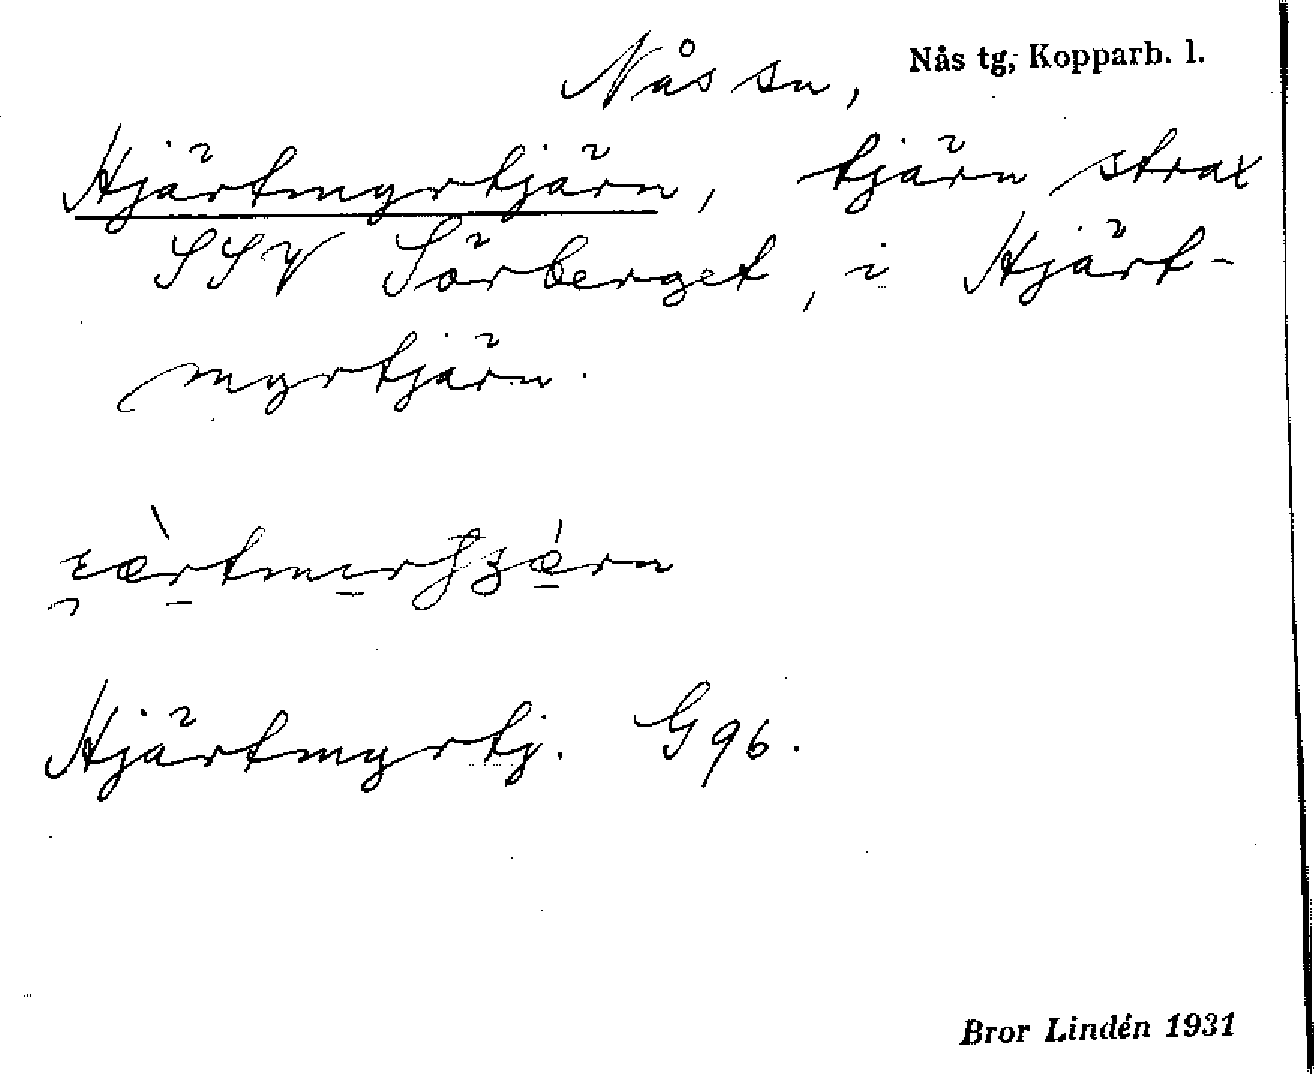 Nås sn, Nås tg, Kopparb. l.
Hjärtmyrtjärn, tjärn strax
SSV Sörberget, i Hjärt-
myrtjärn.
Hjärtmyrtj. G96.
Bror Lindén 1931